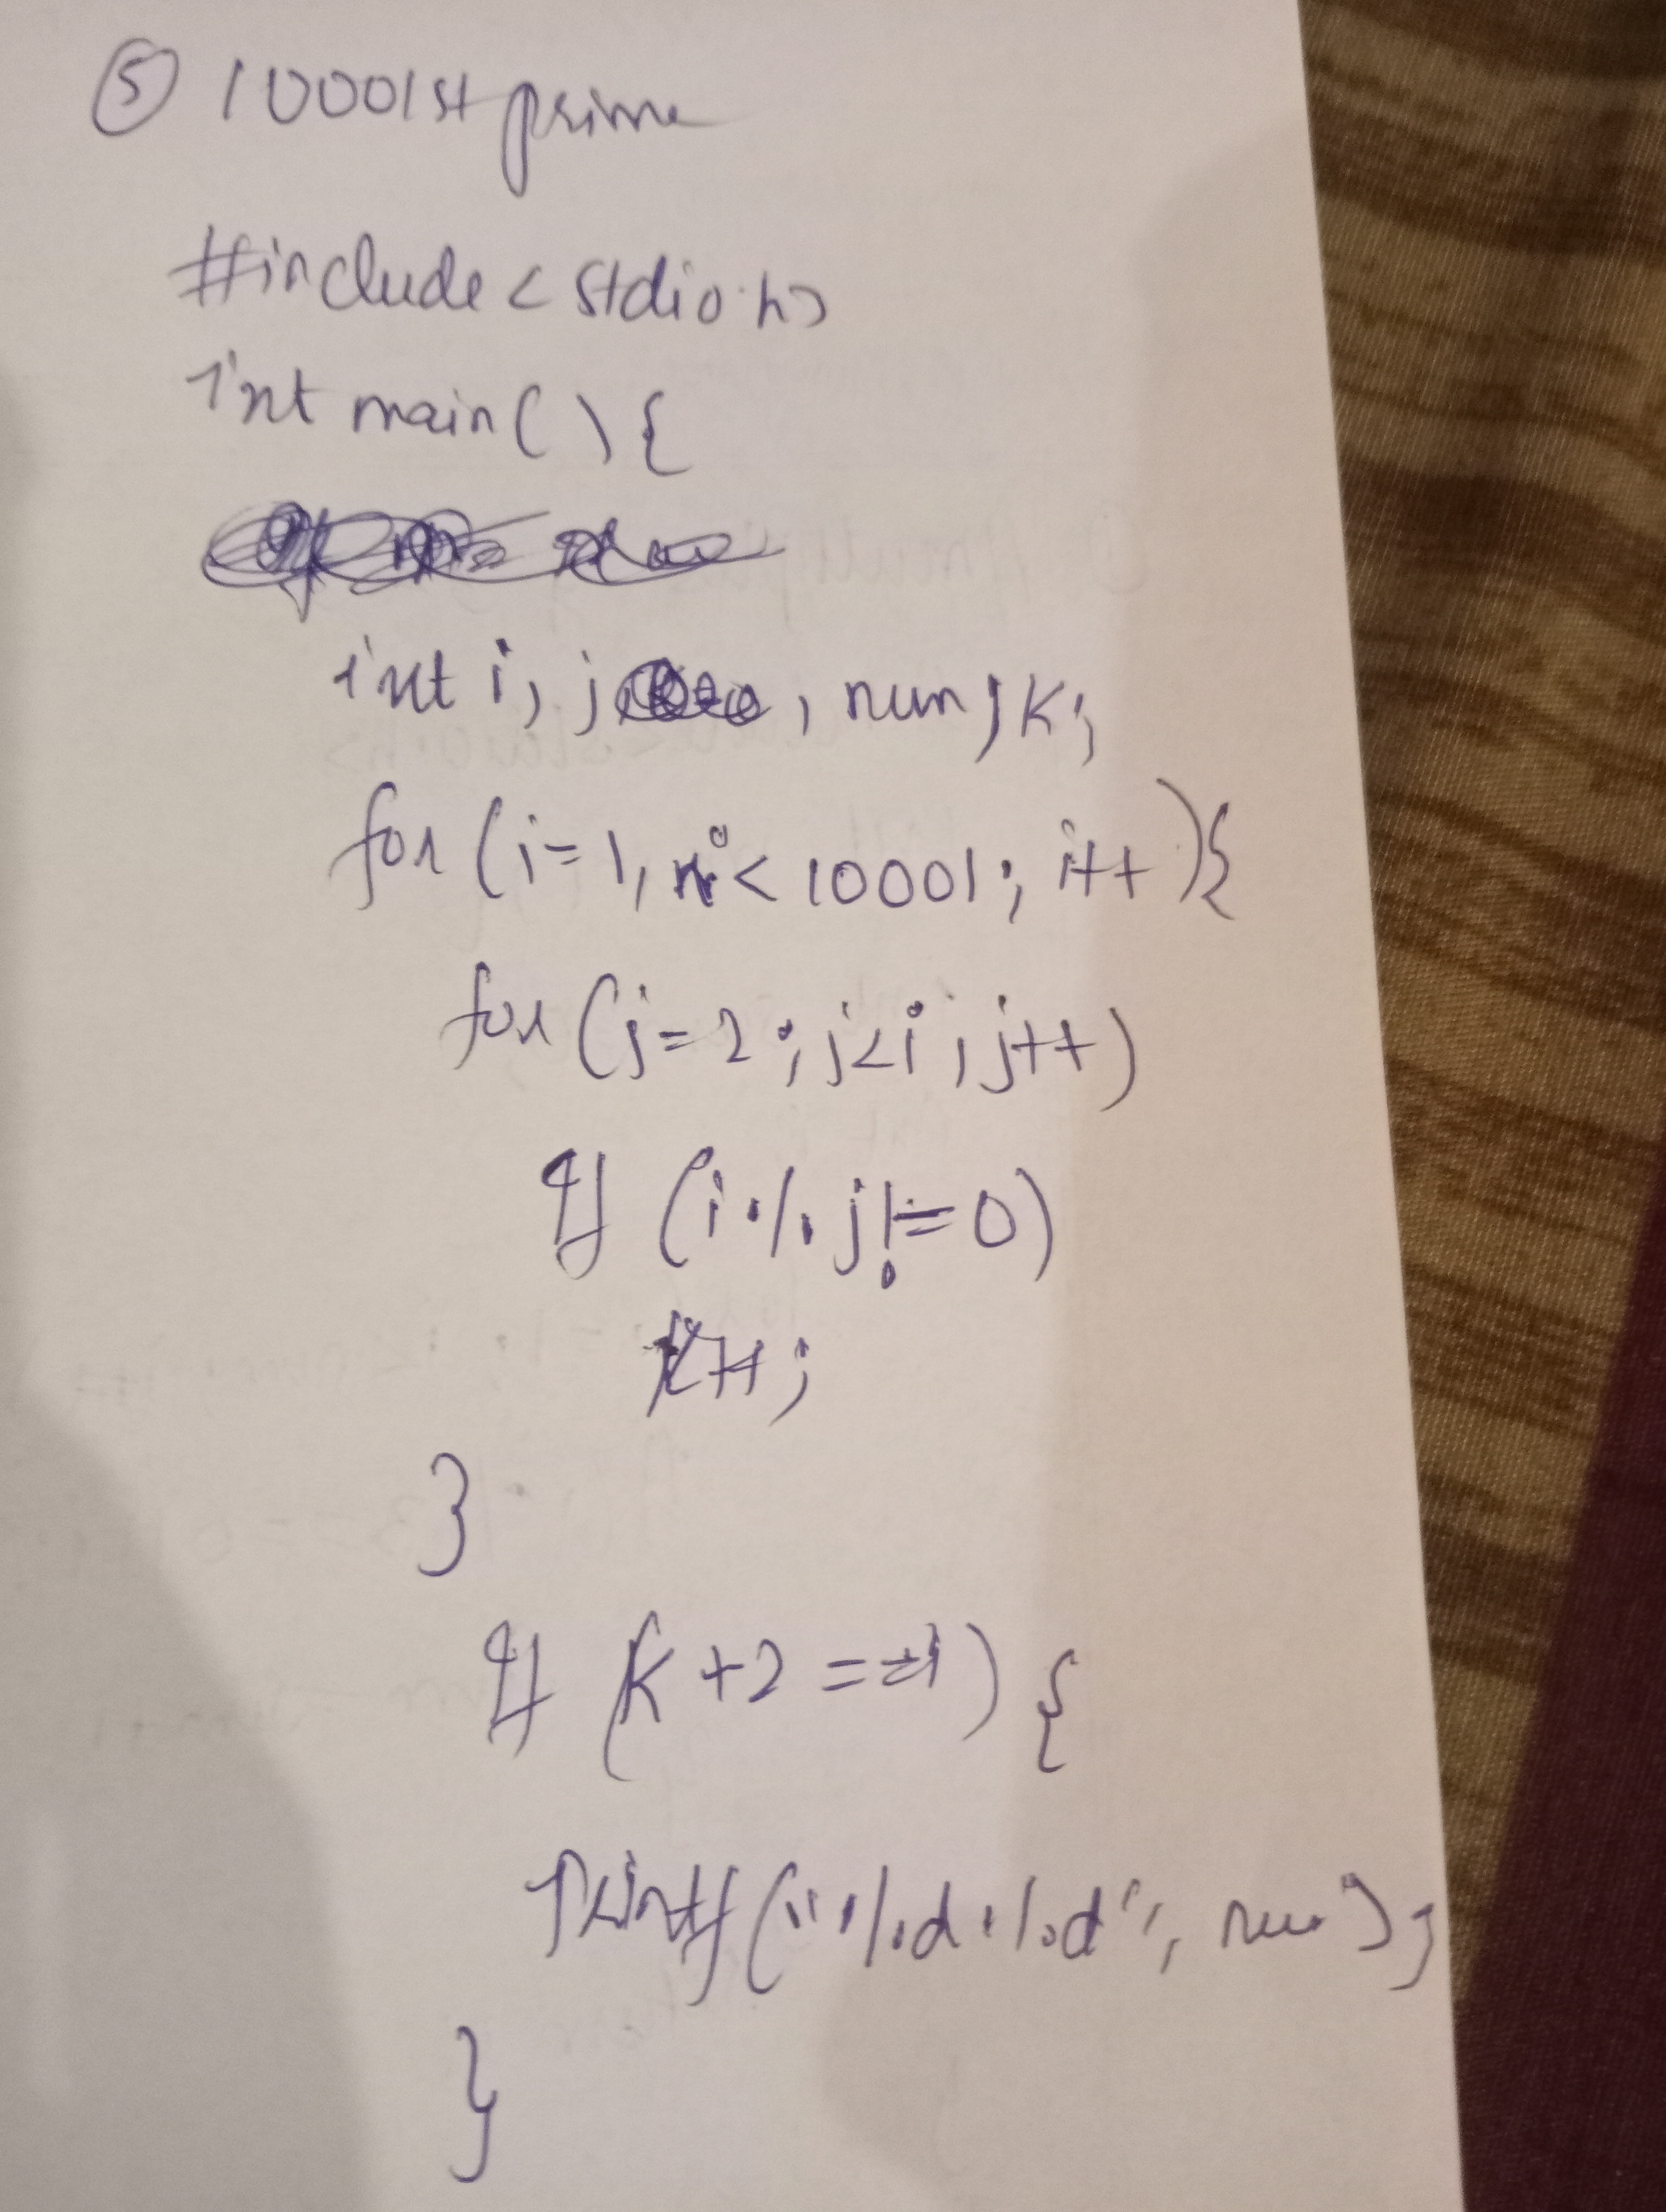 ⑤ 10001st prime
#include<stdio.h>
int main(){
int i, j, num, k;
for (i=1, i<10001; i++){
for (j=2; j<i; j++)
if (i%j!=0)
k++;
}
if (k+2==i) {
printf("%d%d", num);
}